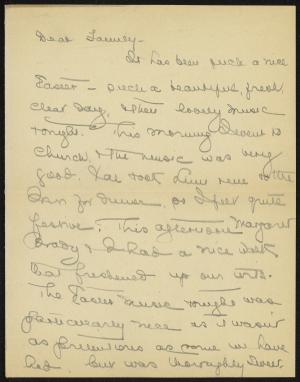 Dear Tammey -
It has been such a nice
Easter - such a beautiful, fresh
clear day, & then lovely music
tonight. This morning I went to
Church, & the music was very
good. Kae took Lunn here to the
Inn for dinner, so I felt quite
festive. This afternoon Margaret
Brady & I had a nice walk
that freshened up our wits.
The Easter music tonight was
particularly nice as it wasn't
as pretentious as some we have
had, but was thoroughly sweet.